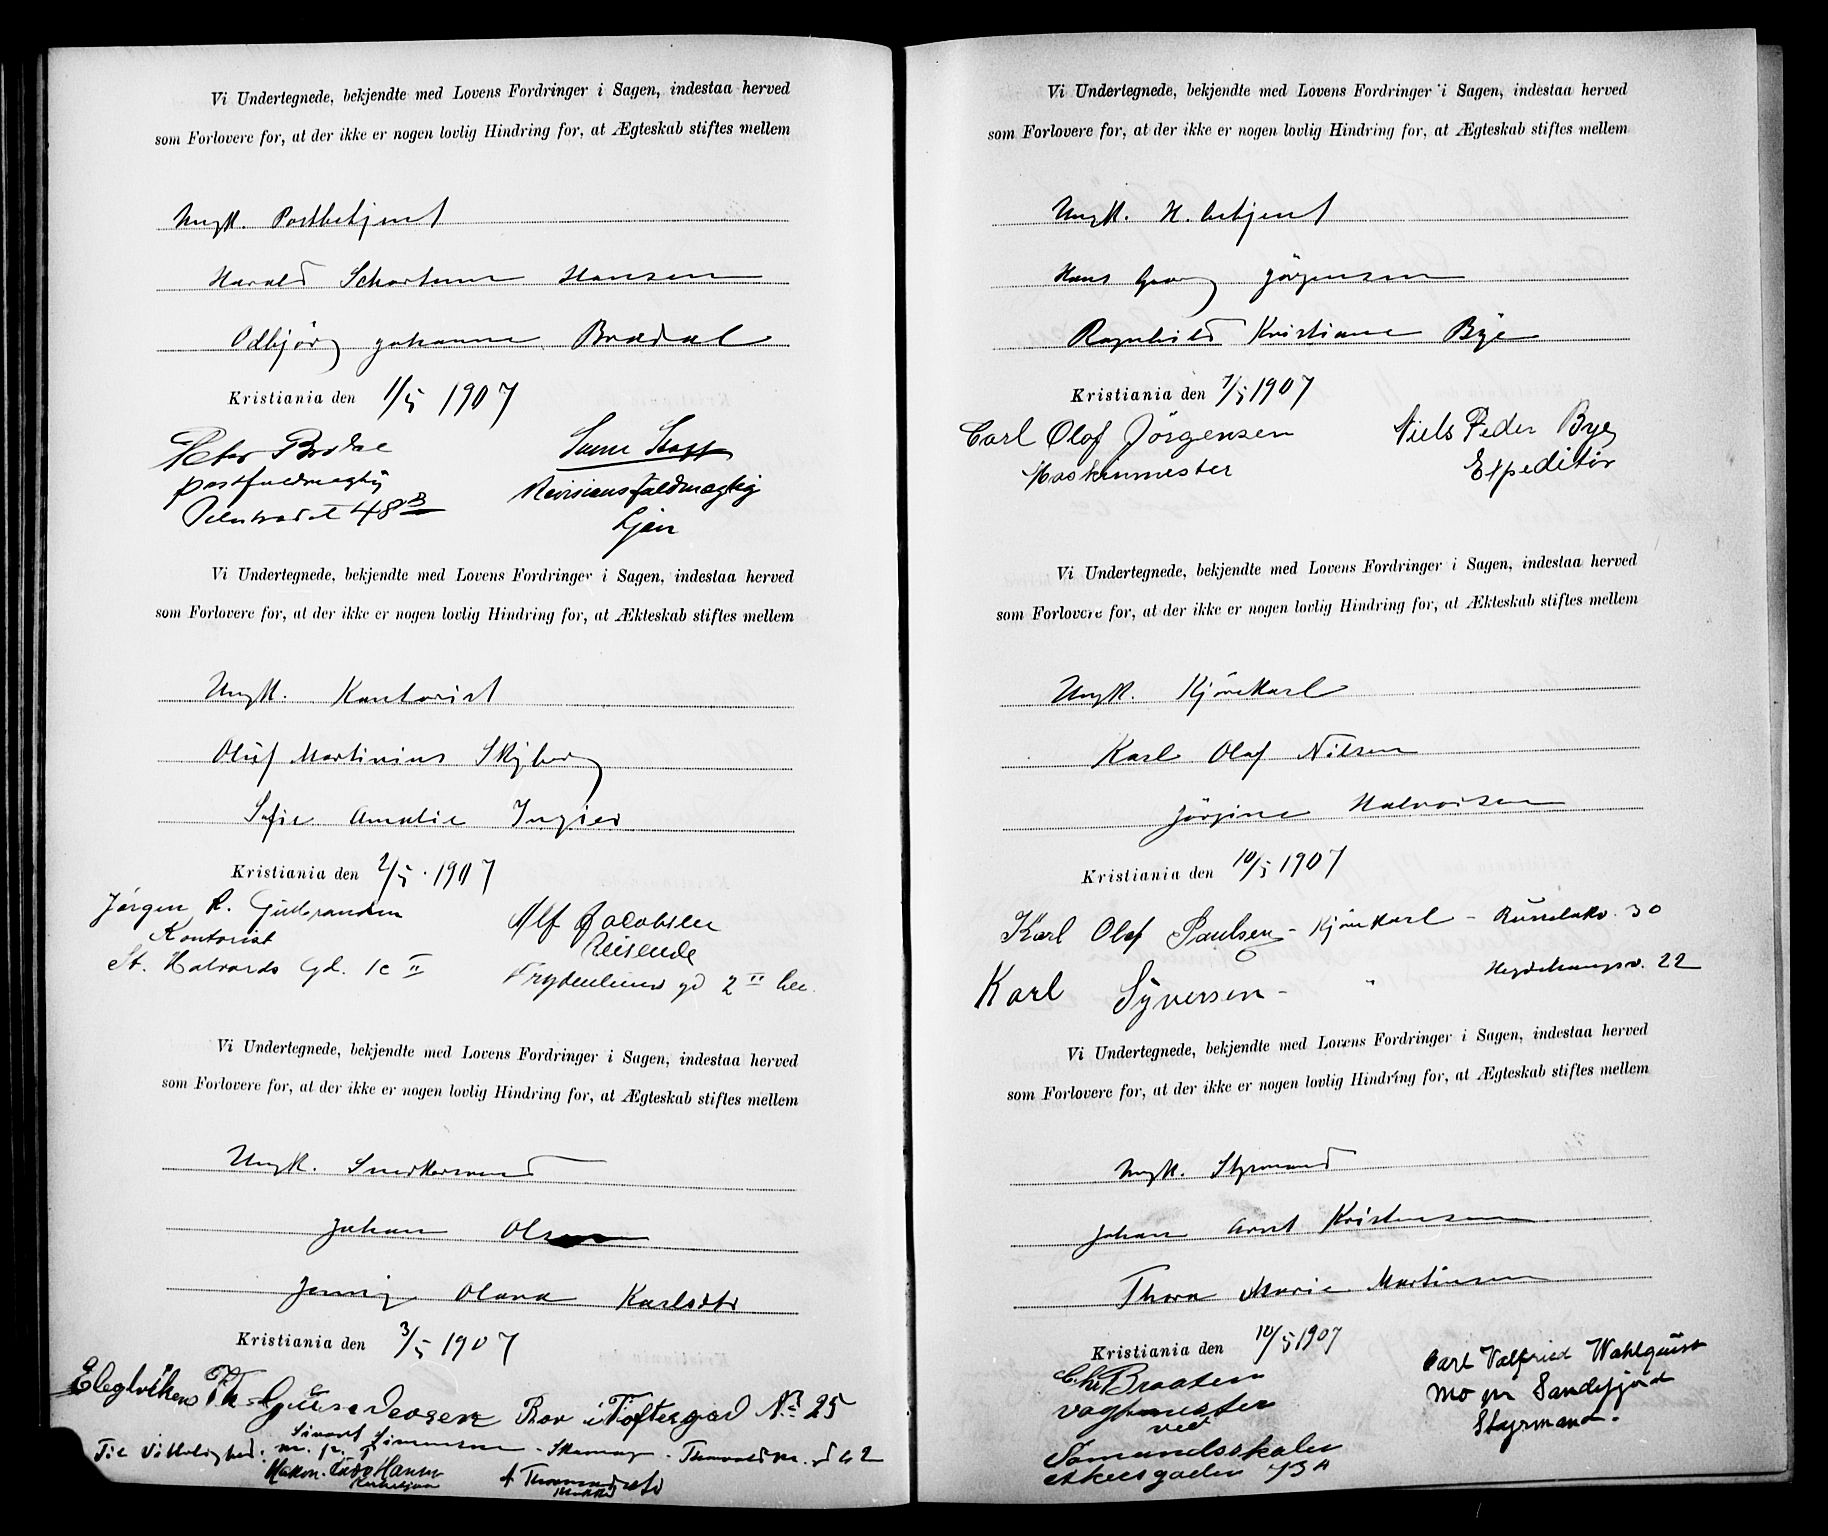 Vi Undertegnede, bekjendte med Lovens Fordringer i Sagen, indestaa herved
som Forlovere for, at der ikke er nogen lovlig Hindring for, at Ægteskab stiftes mellem
Ungk. Postbetjent
Harald Hansen
Odbjørg Johanne Brødal
Kristiania den 1/5 1907
Peter
postfuldmægtig
48 B
Revisionsfuldmægtig
Ljan
Vi Undertegnede, bekjendte med Lovens Fordringer i Sagen, indestaa herved
som Forlovere for, at der ikke er nogen lovlig Hindring for, at Ækteskab stiftes mellem
Ungk. Kontorist
Oluf Martinius Skyberg
Sofie Amalie Ingier
Kristiania den 2/5 . 1907
Jørgen R. Gulbrandsen
Kontorist
St. Halvards Gd. 1c II
Alf Jacobsen
Reisende
gd 2 II
Vi Undertegnede, bekjendte med Lovens Fordringer i Sagen, indestaa herved
som Forlovere for, at der ikke er nogen lovlig Hindring for, at Ægteskab stiftes mellem
Ungk. Snedkersvend
Johan Olsen
Jenny Olava Karlsdtr
Kristiania den 3/5 1907
Th. Bor i Toftergad No 25
Sivert Simensen - Skomag. -
Til Vitterlighed:
Hansen
Vi Undertegnede, bekjendte med Lovens Fordringer i Sagen, indestaa herved
som Forlovere for, at der ikke er nogen lovlig Hindring for, at Ægteskab stiftes mellem
Ungk. H. betjent
Hans Georg Jörgensen
Ragnhild Kristiane Bye
Kristiania den 7/5 1907
Carl Olaf Jörgensen
Maskinmester
Niels Peder Bye
Expeditör
Vi Undertegnede, bekjendte med Lovens Fordringer i Sagen, indestaa herved
som Forlovere for, at der ikke er nogen lovlig Hindring for, at Ækteskab stiftes mellem
Ungk. Kjörekarl
Karl Olaf Nilsen
Jörgine Halvorsen
Kristiania den 10/5 1907
Karl Olaf Paulsen - Kjörekarl - Russeløkv. 30
Karl Syversen - " Hegdehaugsv. 22
Vi Undertegnede, bekjendte med Lovens Fordringer i Sagen, indestaa herved
som Forlovere for, at der ikke er nogen lovlig Hindring for, at Ægteskab stiftes mellem
Ungk. Styrmand
Johan Arnt Kristensen
Thora Marie Martinsen
Kristiania den 10/5 1907
Chr Braaten
vagtmester
ved
Sömandsskolen
Akersgaden 73 A
Carl Valfried Wahlquist
Mo pr Sandefjord
Styrmand.